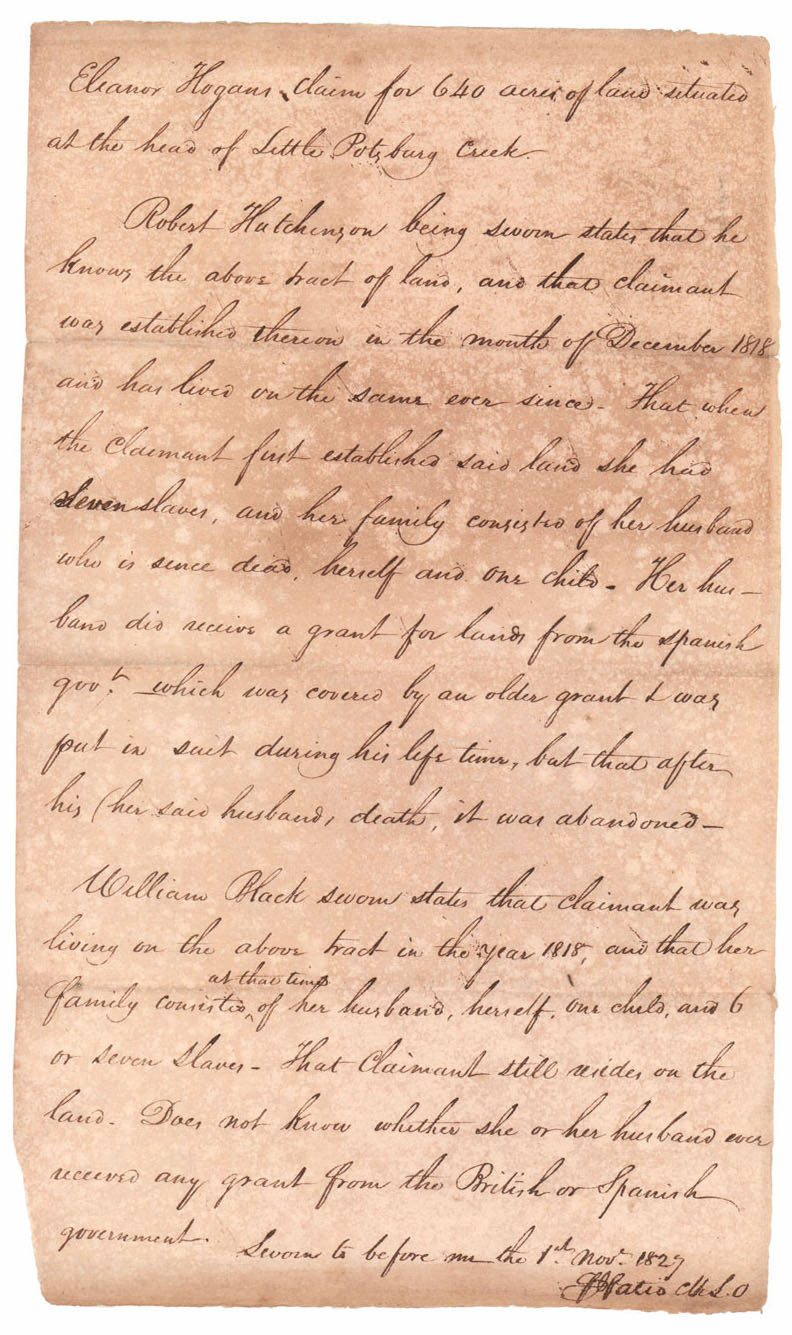 Eleanor Hogans claim for 640 acres of land situated
at the head of Little Potsburg Creek.
Robert Hutchinson being sworn states that he
knows the above tract of land, and that claimant
was established thereon in the month of December 1818
and has lived on the same ever since - That when
the claimant first established said land she had
seven slaves, and her family consisted of her husband
who is since dead, herself and one child - Her hus-
band did receive a grant for lands from the spanish
govt. which was covered by an older grant & was
put in suit during his life time, but that after
his (her said husbands death, it was abandoned -
William Black sworn states that claimant was
living on the above tract in the year 1818, and that her
at that time
family consisted, of her husband, herself, one child, and 6
or seven slaves - That Claimant still resides on the
land. Does not know whether she or her husband ever
received any grant from the British or Spanish
government.
Sworn to before me the 1st Nov. 1827